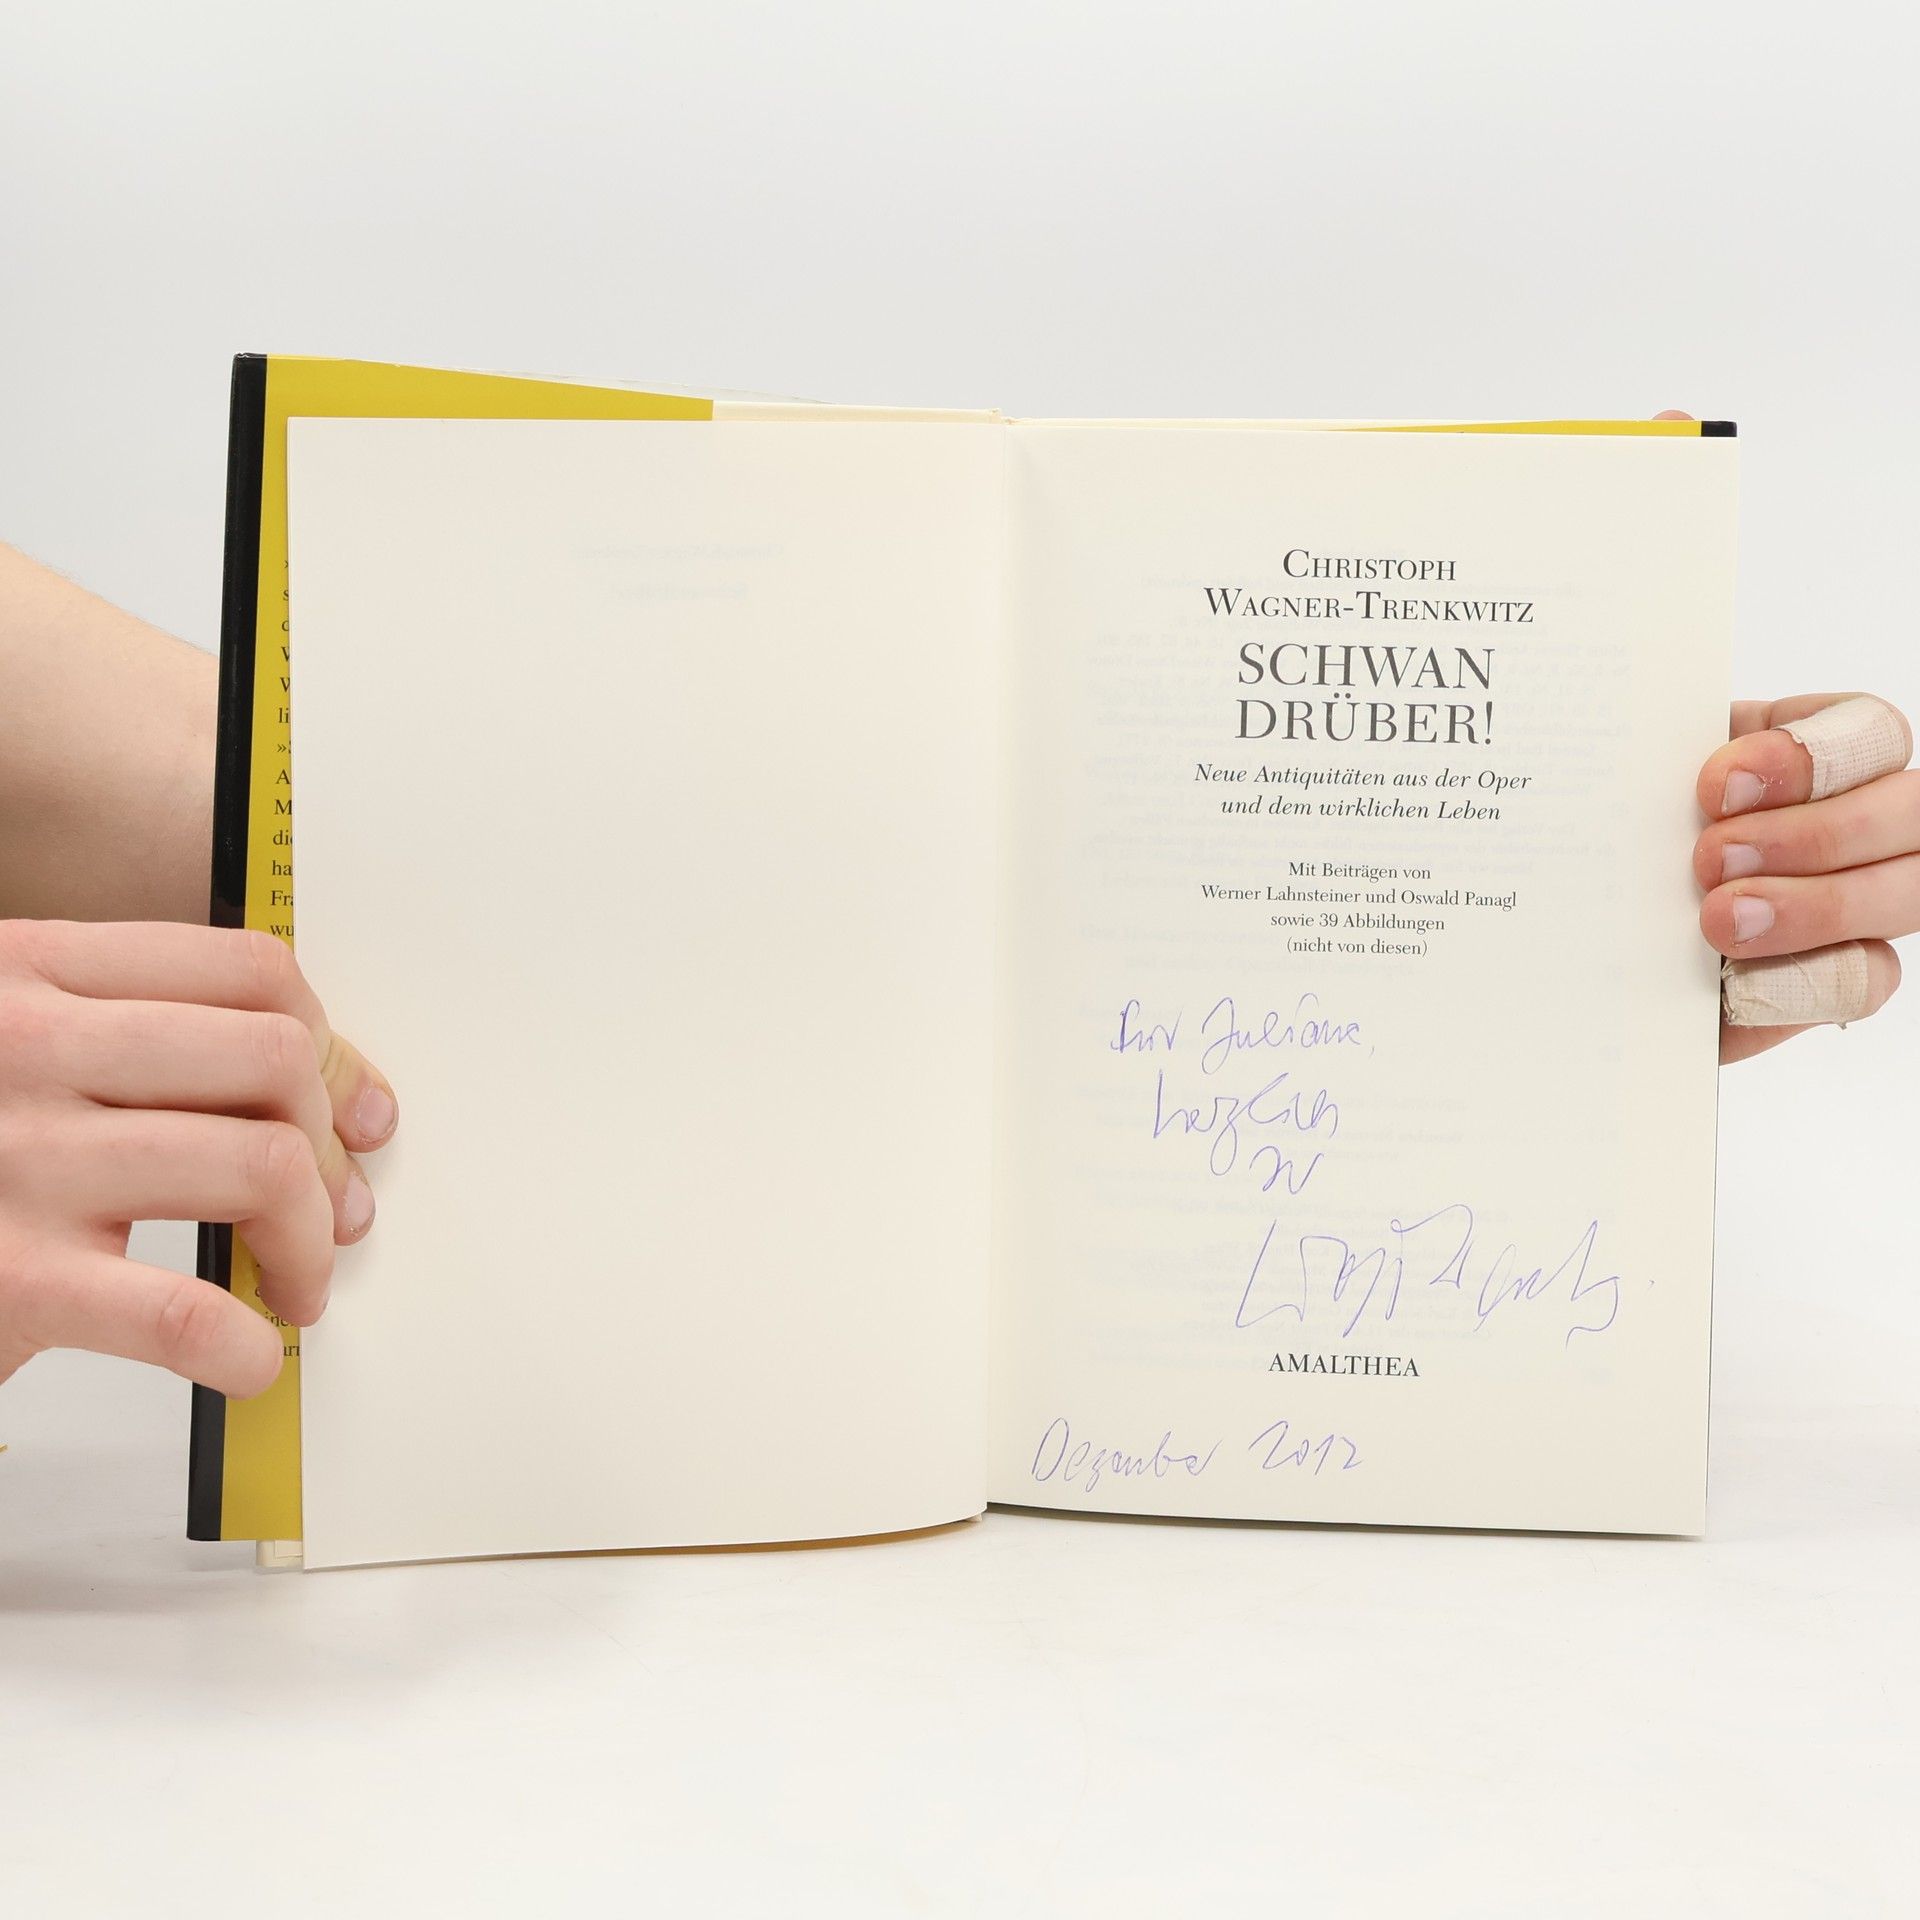 »
s
d
W
W
li
»S
A
M
die
ha
Fra
wu
CHRISTOPH
WAGNER-TRENKWITZ
SCHWAN
DRÜBER!
Neue Antiquitäten aus der Oper
und dem wirklichen Leben
Mit Beiträgen von
Werner Lahnsteiner und Oswald Panagl
sowie 39 Abbildungen
(nicht von diesen)
Für Juliane,
herzlich
AMALTHEA
Dezember 2012